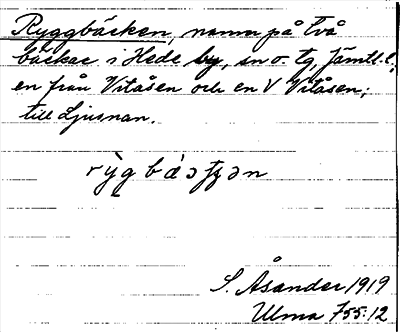 Ryggbäcken, namn på två
bäckar i Hede by, sn o. tg, Jämtl. l.;
en från Vitåsen och en V Vitåsen;
till Ljusnan.
S. Åsander 1919
Ulma 755:12